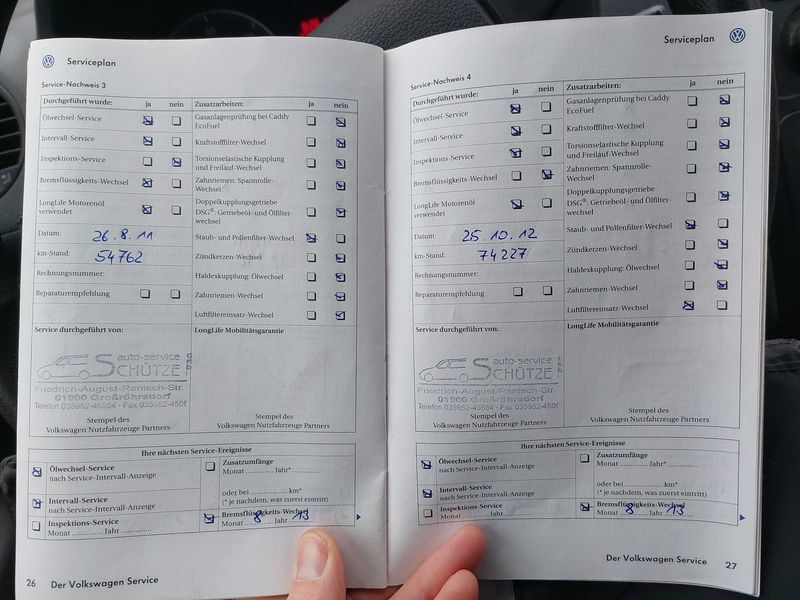 Serviceplan
Service-Nachweis 3
Durchgeführt wurde: ja nein Zusatzarbeiten: ja nein
Ölwechsel-Service
Intervall-Service
Inspektions-Service
Bremsflüssigkeits-Wechsel
LongLife Motorenöl
verwendet
Datum: 26.8.11
km-Stand: 54762
Rechnungsnummer:
Reparaturempfehlung
Gasanlagenprüfung bei Caddy
EcoFuel
Kraftstofffilter-Wechsel
Torsionselastische Kupplung
und Freilauf-Wechsel
Zahnriemen: Spannrolle-
Wechsel
Doppelkupplungsgetriebe
DSG®: Getriebeöl- und Ölfilter-
wechsel
Staub- und Pollenfilter-Wechsel
Zündkerzen-Wechsel
Haldexkupplung: Ölwechsel
Zahnriemen-Wechsel
Luftfiltereinsatz-Wechsel
Service durchgeführt von:
LongLife Mobilitätsgarantie
auto-service
SCHÜTZE GmbH
Friedrich-August-Rentsch-Str.
01900 Großröhrsdorf
Telefon 035952-46554 · Fax 035952-4506
Stempel des
Volkswagen Nutzfahrzeuge Partners
Stempel des
Volkswagen Nutzfahrzeuge Partners
Ihre nächsten Service-Ereignisse
Ölwechsel-Service
nach Service-Intervall-Anzeige
Intervall-Service
nach Service-Intervall-Anzeige
Inspektions-Service
Monat ............ Jahr ............
Zusatzumfänge
Monat ............ Jahr* ............
oder bei ............ km*
(* je nachdem, was zuerst eintritt)
Bremsflüssigkeits-Wechsel
Monat 8 Jahr 13
26 Der Volkswagen Service
Serviceplan
Service-Nachweis 4
Durchgeführt wurde: ja nein Zusatzarbeiten: ja nein
Ölwechsel-Service
Intervall-Service
Inspektions-Service
Bremsflüssigkeits-Wechsel
LongLife Motorenöl
verwendet
Datum: 25.10.12
km-Stand: 74227
Rechnungsnummer:
Reparaturempfehlung
Gasanlagenprüfung bei Caddy
EcoFuel
Kraftstofffilter-Wechsel
Torsionselastische Kupplung
und Freilauf-Wechsel
Zahnriemen: Spannrolle-
Wechsel
Doppelkupplungsgetriebe
DSG®: Getriebeöl- und Ölfilter-
wechsel
Staub- und Pollenfilter-Wechsel
Zündkerzen-Wechsel
Haldexkupplung: Ölwechsel
Zahnriemen-Wechsel
Luftfiltereinsatz-Wechsel
Service durchgeführt von:
LongLife Mobilitätsgarantie
auto-service
SCHÜTZE GmbH
Friedrich-August-Rentsch-Str.
01900 Großröhrsdorf
Telefon 035952-46554 · Fax 035952-4506
Stempel des
Volkswagen Nutzfahrzeuge Partners
Stempel des
Volkswagen Nutzfahrzeuge Partners
Ihre nächsten Service-Ereignisse
Ölwechsel-Service
nach Service-Intervall-Anzeige
Intervall-Service
nach Service-Intervall-Anzeige
Inspektions-Service
Monat ............ Jahr ............
Zusatzumfänge
Monat ............ Jahr* ............
oder bei ............ km*
(* je nachdem, was zuerst eintritt)
Bremsflüssigkeits-Wechsel
Monat 8 Jahr 13
Der Volkswagen Service 27